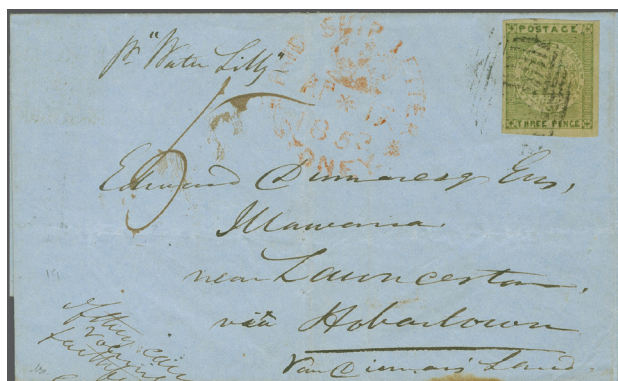 pr "Water Lilly"
PAID SHIP LETTER
SYDNEY
POSTAGE
THREE PENCE
5
Edward Dumaresq Esq,
Illawarra
near Launceston,
via Hobartown
Van Diemans Land